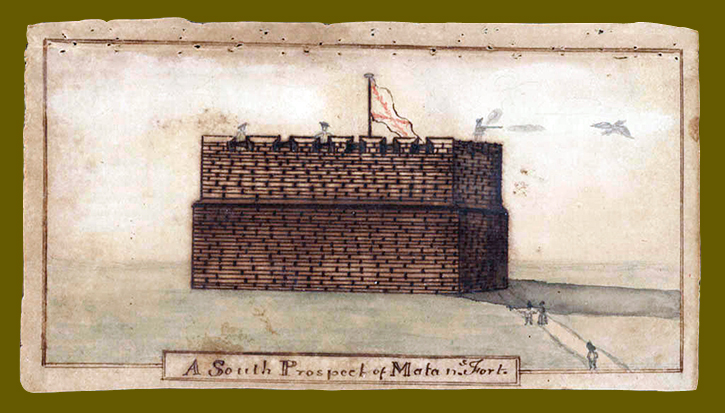 A South Prospect of Matan.ˢ Fort.